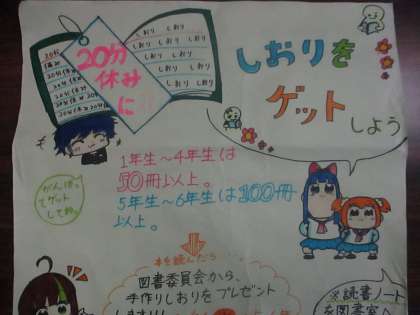 20分
休みに
しおりを
ゲット
しよう
しおり しおり
しおり しおり しおり
しおり しおり しおり
しおり しおり しおり
しおり しおり
20分
休み
1年生～4年生は
50冊以上。
5年生～6年生は100冊
以上。
がんばっ
てゲット
してね。
本を読んだら
図書委員会から、
手作りしおりをプレゼント
します!!
※読書ノート
を図書室へ